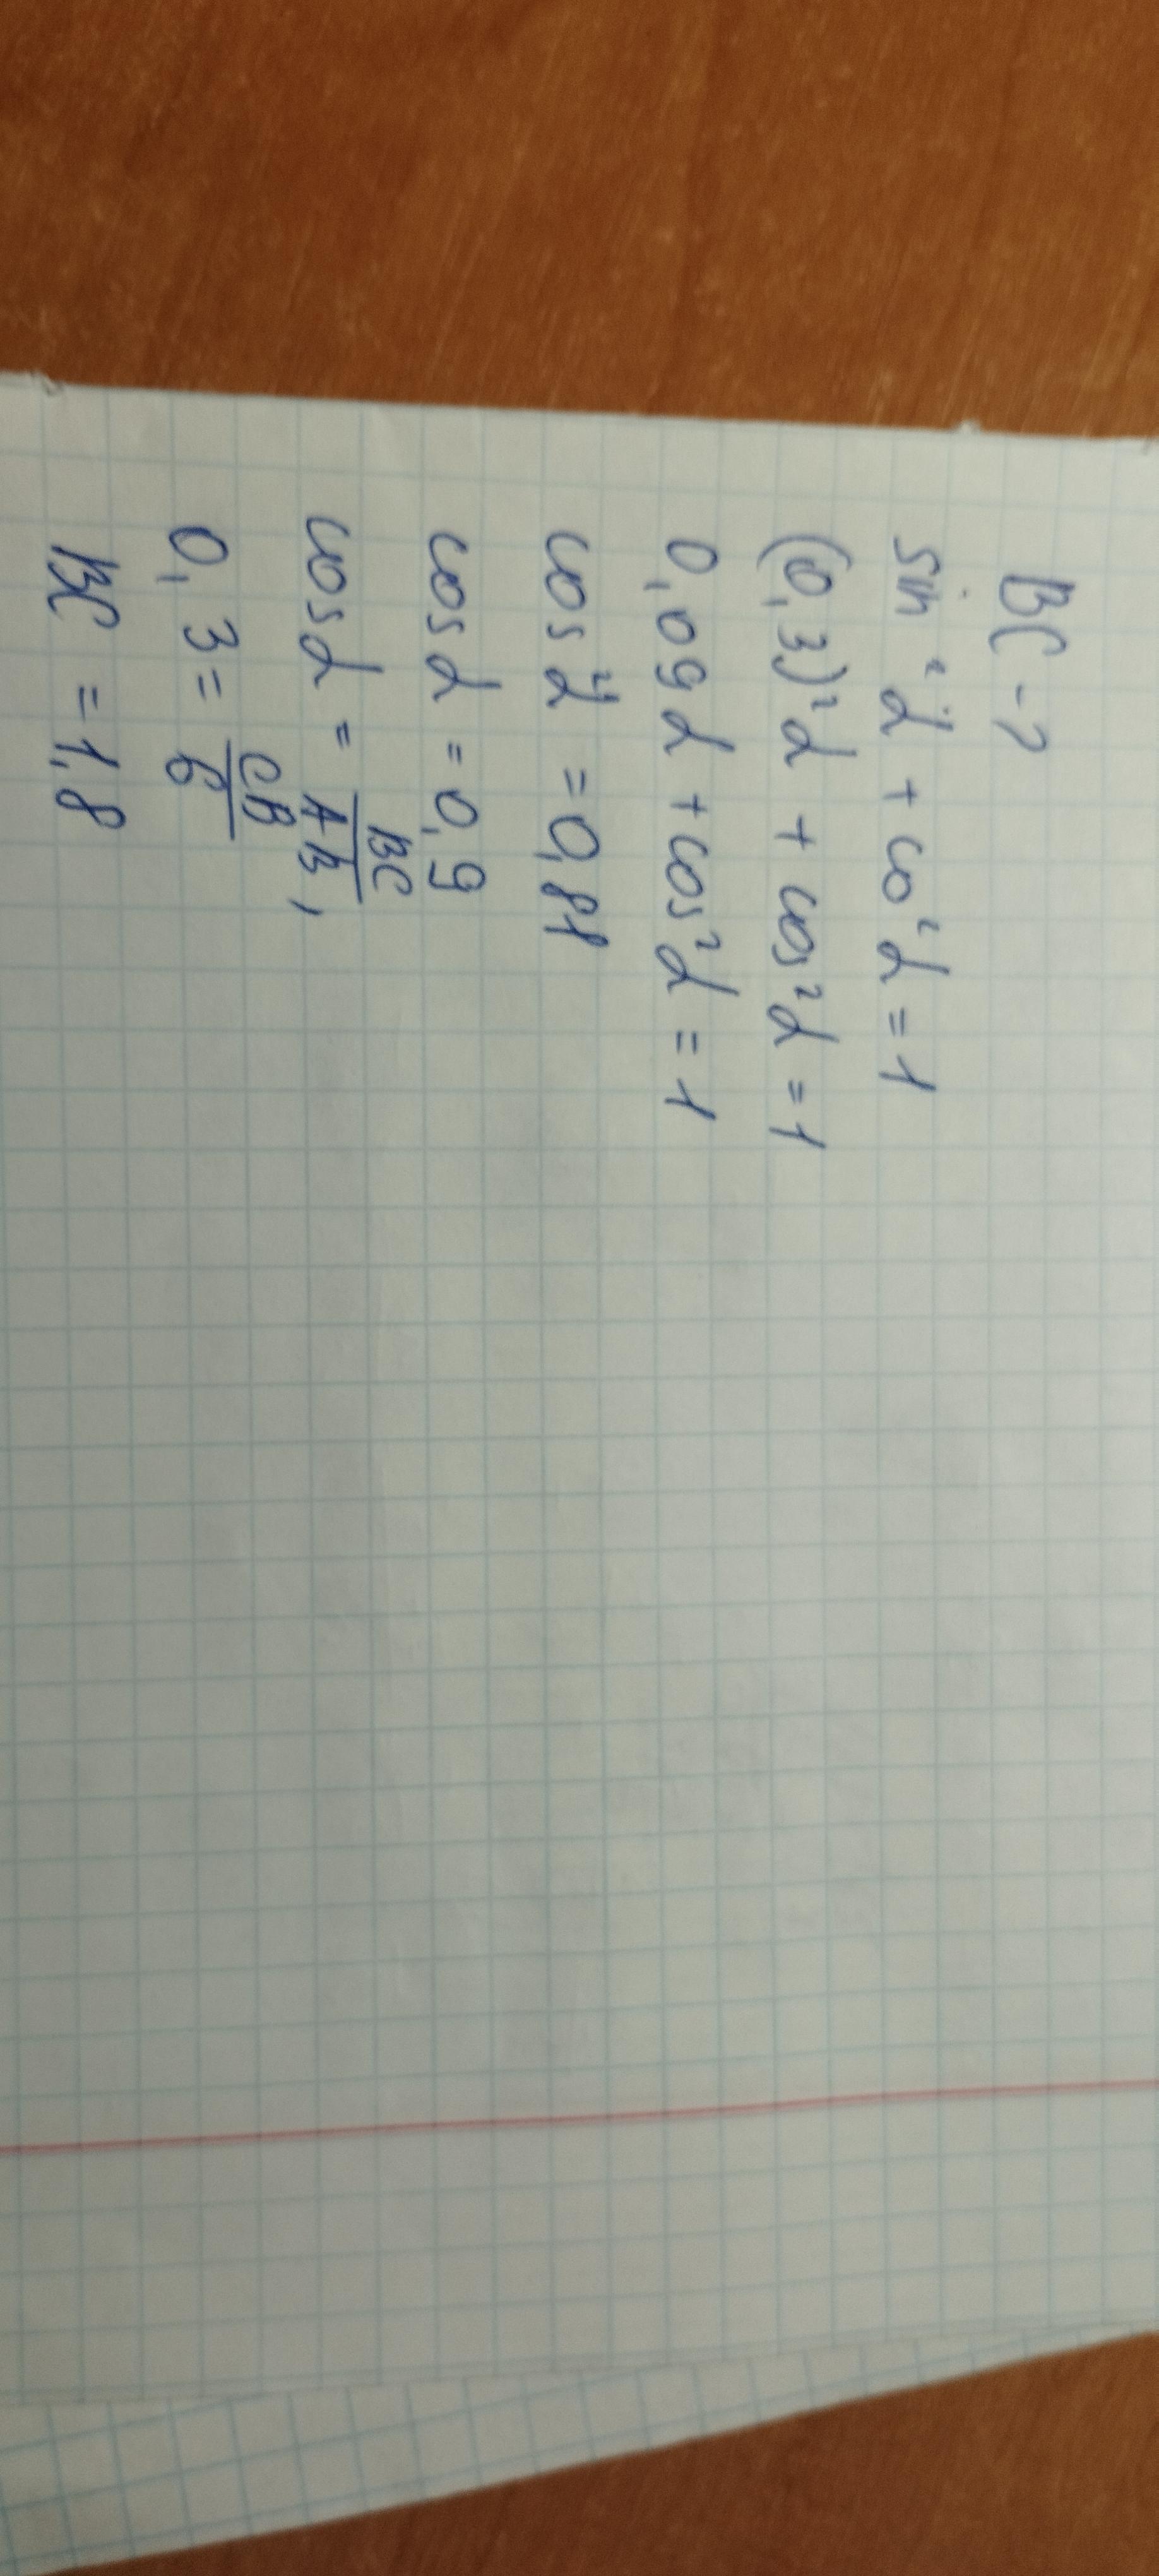 BC - ?
sin²α + co²α = 1
(0,3)²α + cos²α = 1
0,09α + cos²α = 1
cos²α = 0,81
cosα = 0,9
cosα = BC/AB,
0,3 = CB/6
BC = 1,8